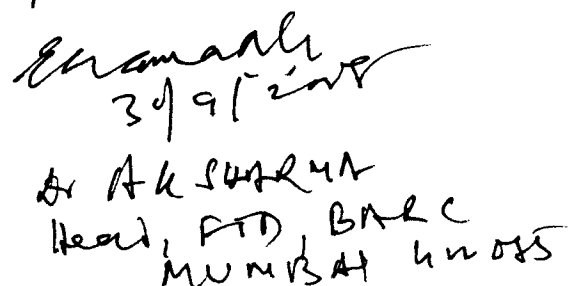 30/9/2008
Dr A K SHARMA
Head, FTD, BARC
MUMBAI 400085